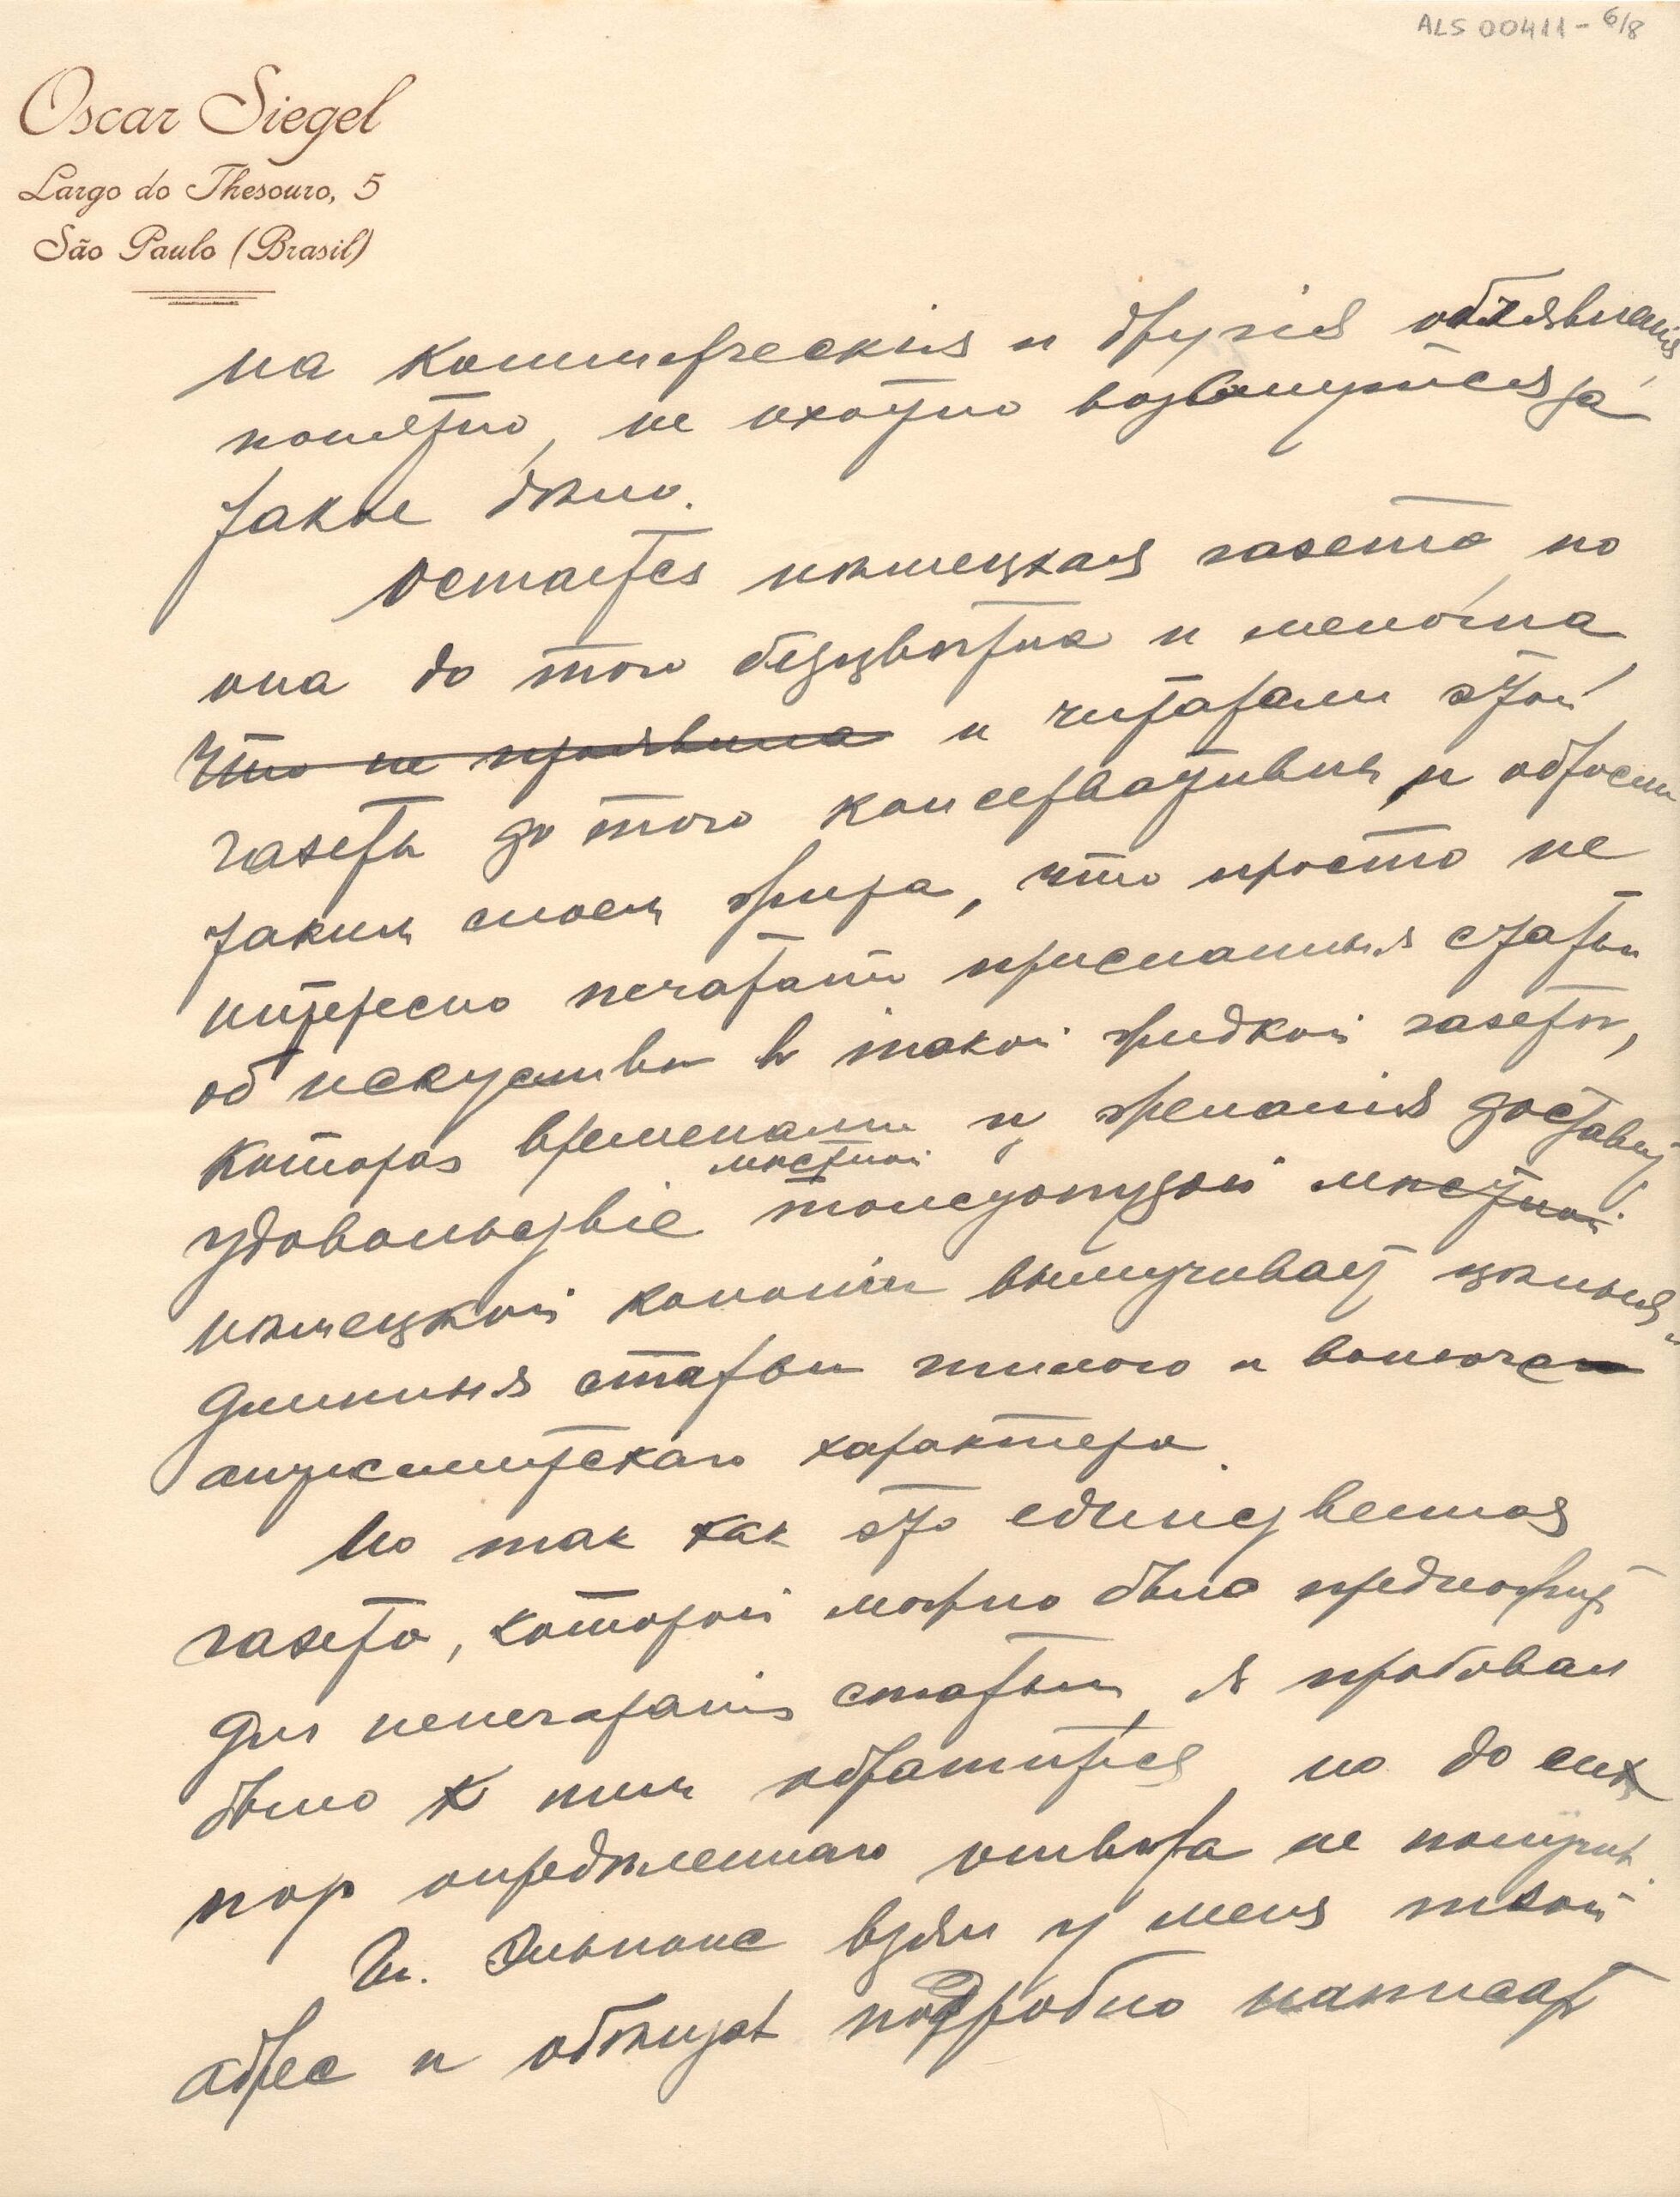 ALS 00411 - 6/8
Oscar Siegel
Largo do Thesouro, 5
São Paulo (Brasil)
на коммерческія и другія объявленія,
понетно, не охотно
такое дѣло.
Остается нѣмецкая газета, но
она до того безцвѣтна и мелочна,
что не и читатели этой
газеты до того консервативны и обросли
таким слоем жира, что просто не
интересно печатать присланныя статьи
об искуства в такой жидкой газетѣ,
которая временами и, желанія доставить
удовольствіе мѣстной толстопузой мѣстной
нѣмецкой колоніи вымучивает цѣлыя и
длинныя статьи гнилого и
антисемитскаго характера.
Но так как это единственная
газета, которой можно было предложить
для печатанія статьи, я пробовал
было к ним обратиться, но до сих
пор опредѣленнаго отвѣта не получил.
Гн. взял у меня твой
адрес и обѣщал подробно написать